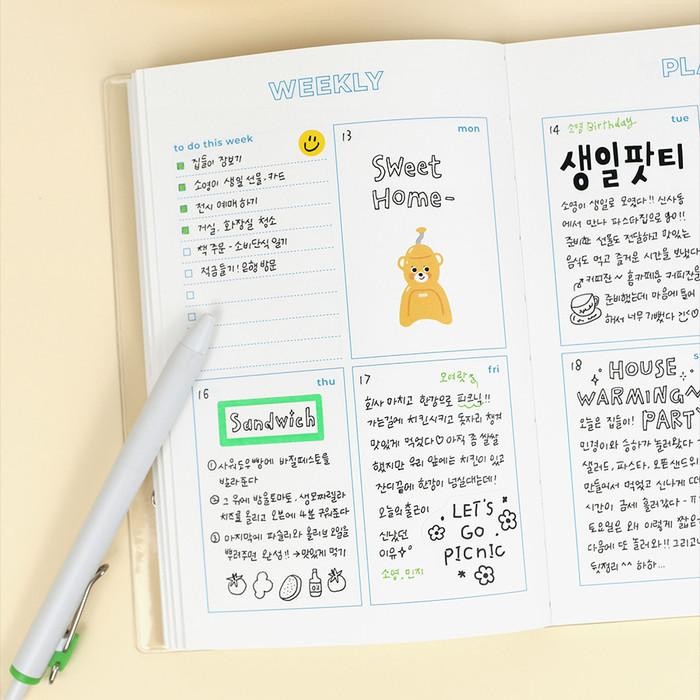 WEEKLY
to do this week
집들이 장보기
소영이 생일 선물, 카드
전시 예매하기
거실, 화장실 청소
책 주문 - 소비단식 일기
적금들기! 은행 방문
13 mon
Sweet
Home-
16 thu
Sandwich
① 사워도우빵에 바질페스토를
발라준다
② 그 위에 방울토마토, 생모짜렐라
치즈를 올리고 오븐에 4분 구워준다
③ 마지막에 파슬리와 올리브 오일을
뿌려주면 완성!! → 맛있게 먹기
17 fri
회사 마치고 한강으로 피크닉!!
가는길에 치킨시키고 돗자리 챙겨
맛있게 먹었다♡ 아직 좀 쌀쌀
했지만 우리 앞에는 치킨이 있고
잔디끝에 한강이 넘실대는데!
오늘의
신났던
이유
소영, 민지
LET'S
GO
PICNIC
PL
14 소영 Birthday tue
생일팟티
소영이 생일로 모였다!! 신사동
에서 만나 파스타집으로
준비한 선물도 전달하고 맛있는
음식도 먹고 즐거운 시간을 보냈다
커피잔 ~ 홈카페용 커피잔을
준비했는데 마음에 들어
해서 너무 기뻤다
18 s
HOUSE
WARMING~
PARTY
오늘은 집들이!
민경이와 승하가 놀러왔다
샐러드, 파스타, 오픈샌드위
만들어서 먹었고 신나게
시간이 금세 흘러갔다
토요일은 왜 이렇게 짧은
다음에 또 놀러와!! 그리고
뒷정리 ^^ 하하...